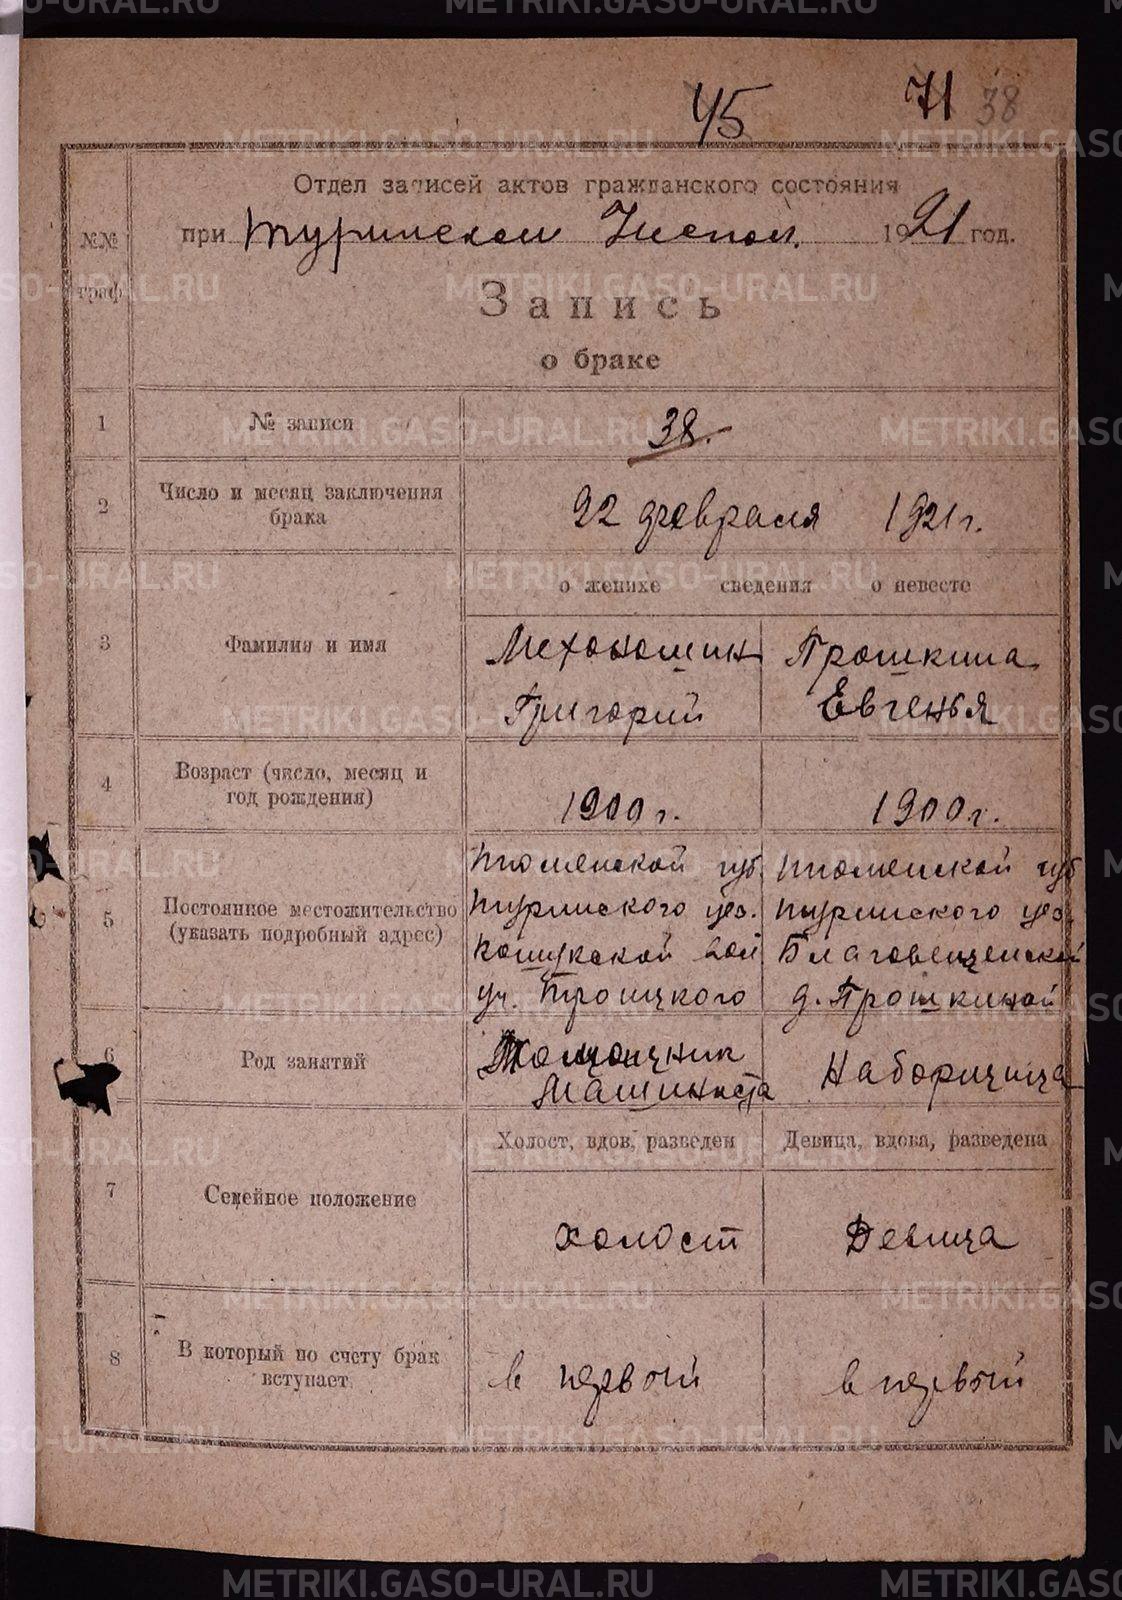 METRIKI.GASO-URAL.RU
45 71 38
Отдел записей актов гражданского состояния
№№ граф
при Туринском Исполк. 1921 год.
Запись
о браке
1 № записи 38.
2 Число и месяц заключения брака 22 февраля 1921 г.
о женихе сведения о невесте
3 Фамилия и имя
Мехоношин Прошкина
Григорий Евгенья
4 Возраст (число, месяц и год рождения) 1900 г. 1900 г.
5 Постоянное местожительство (указать подробный адрес)
Тюменской губ. Тюменской губ
Туринского уез. Туринского уез.
Кошукской вол Благовещенской
уч. Троицкого д. Прошкиной
6 Род занятий
Помощник Наборщица
Машиниста
Холост, вдов, разведен Девица, вдова, разведена
7 Семейное положение холост Девица
8 В который по счету брак вступает в первый в первый
METRIKI.GASO-URAL.RU